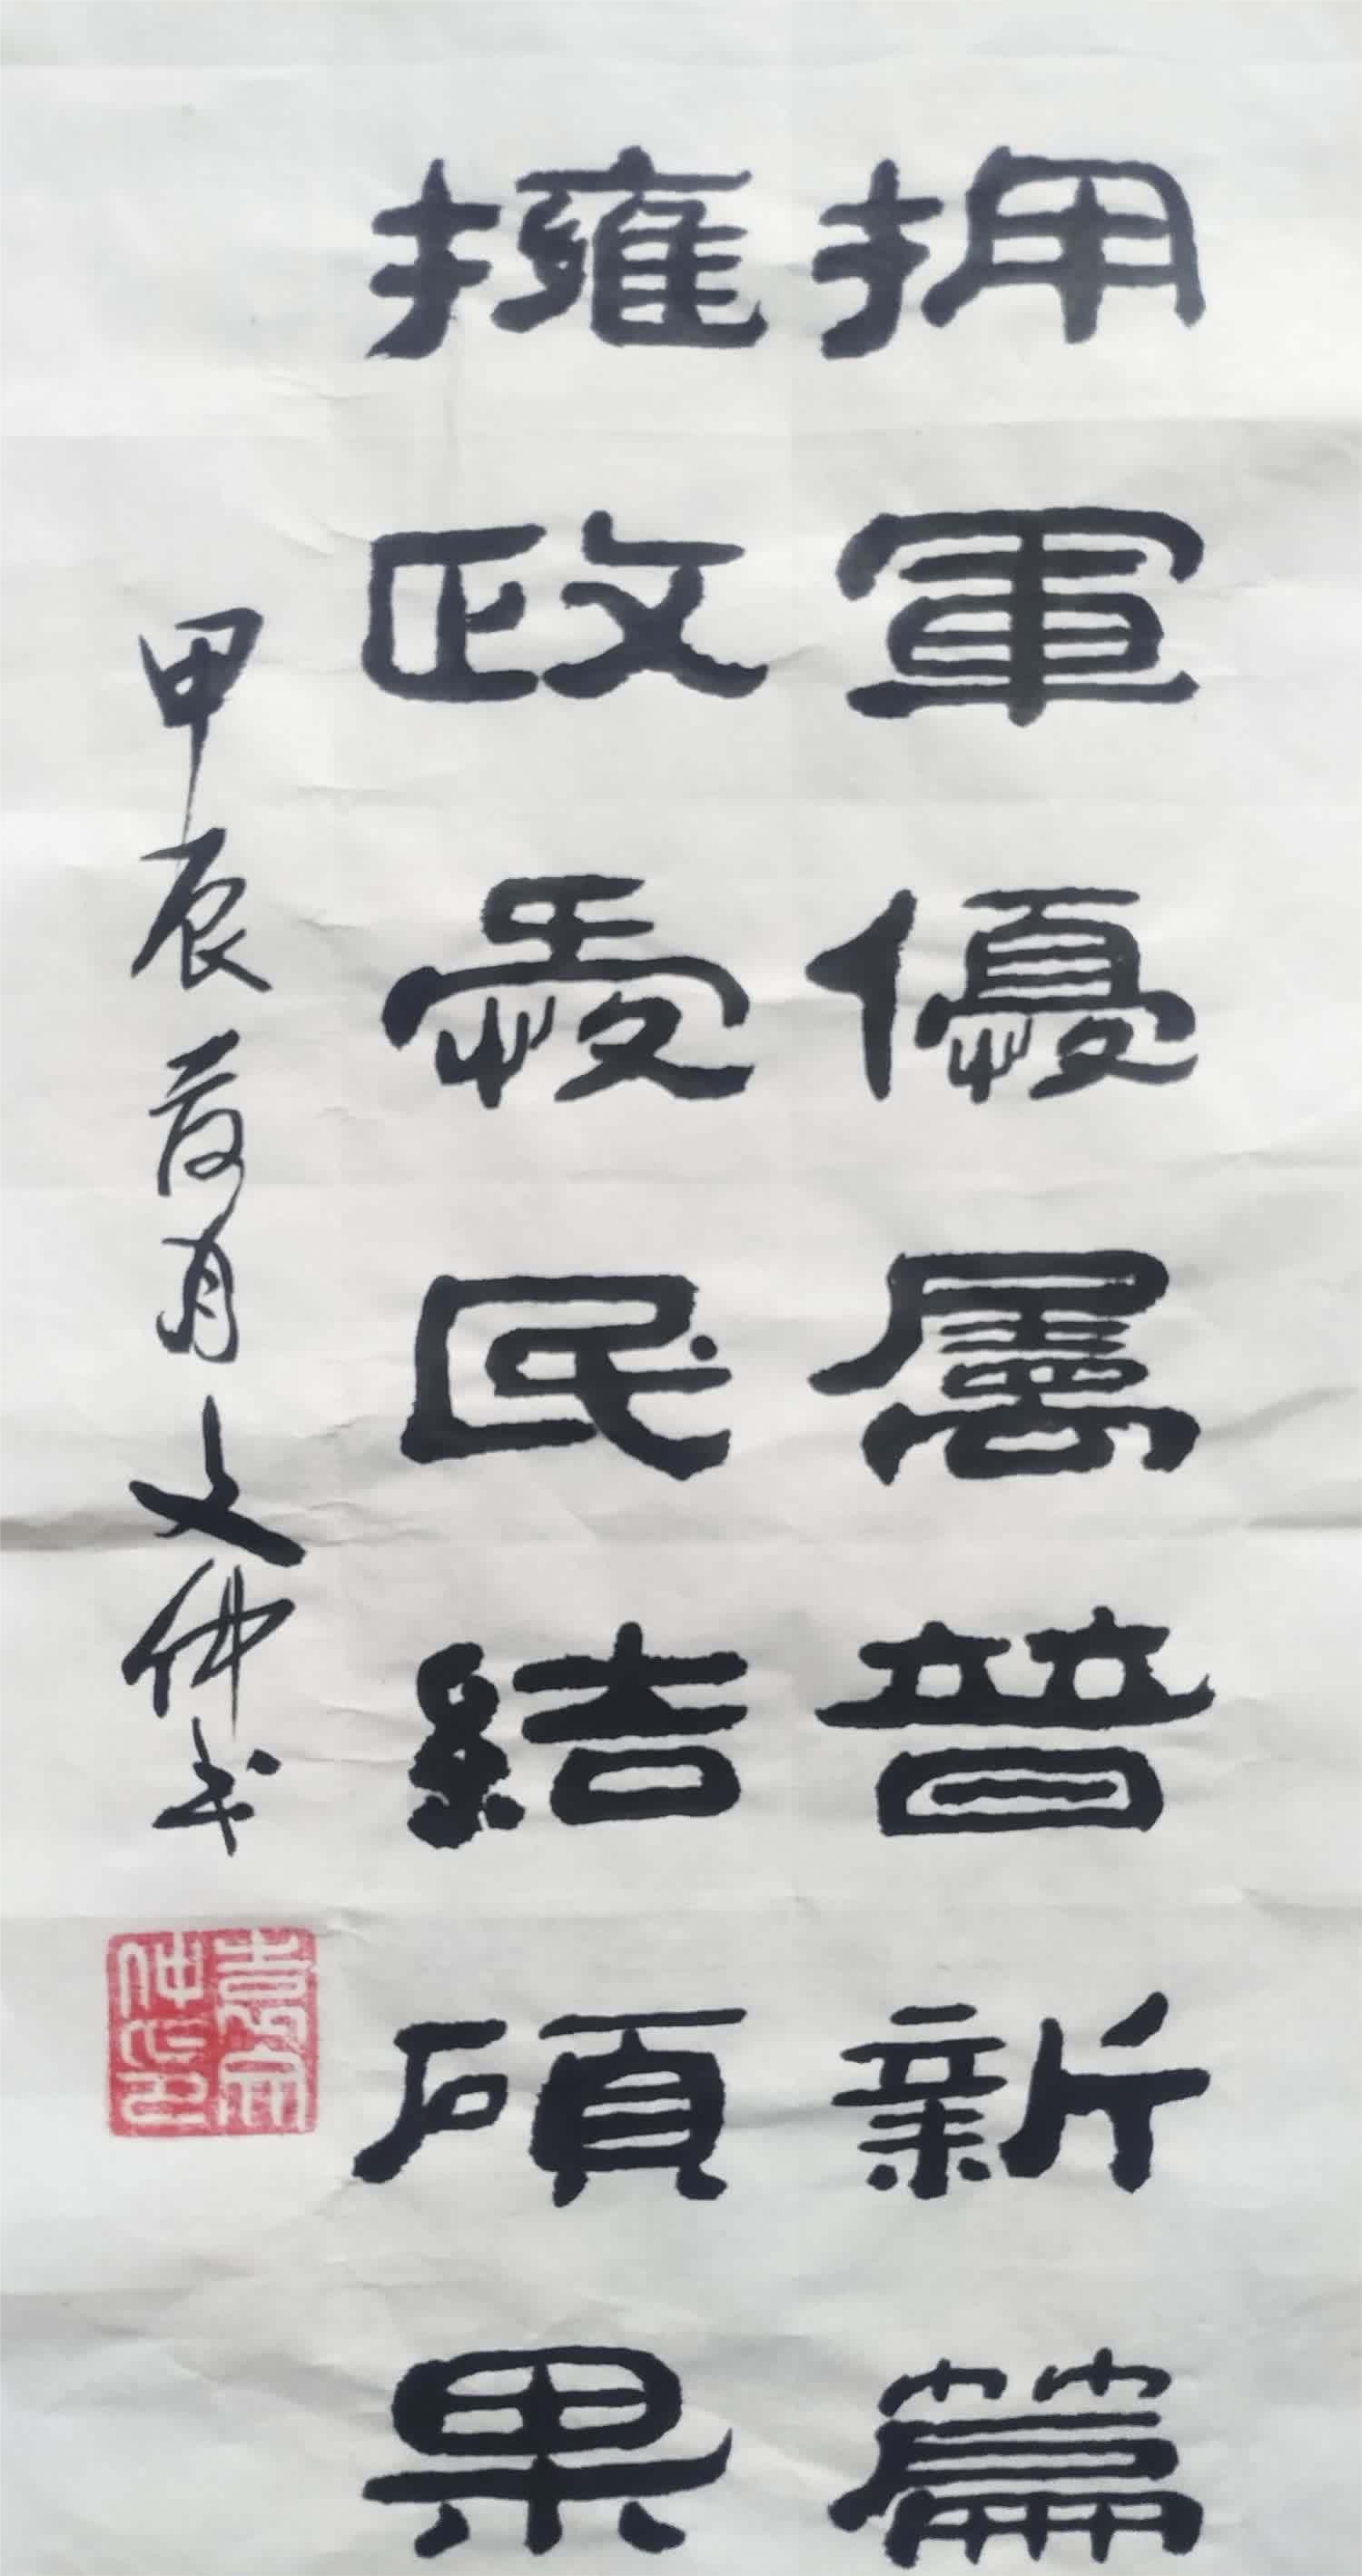 拥軍優屬普新篇
擁政愛民結碩果
甲辰荷月文仲书